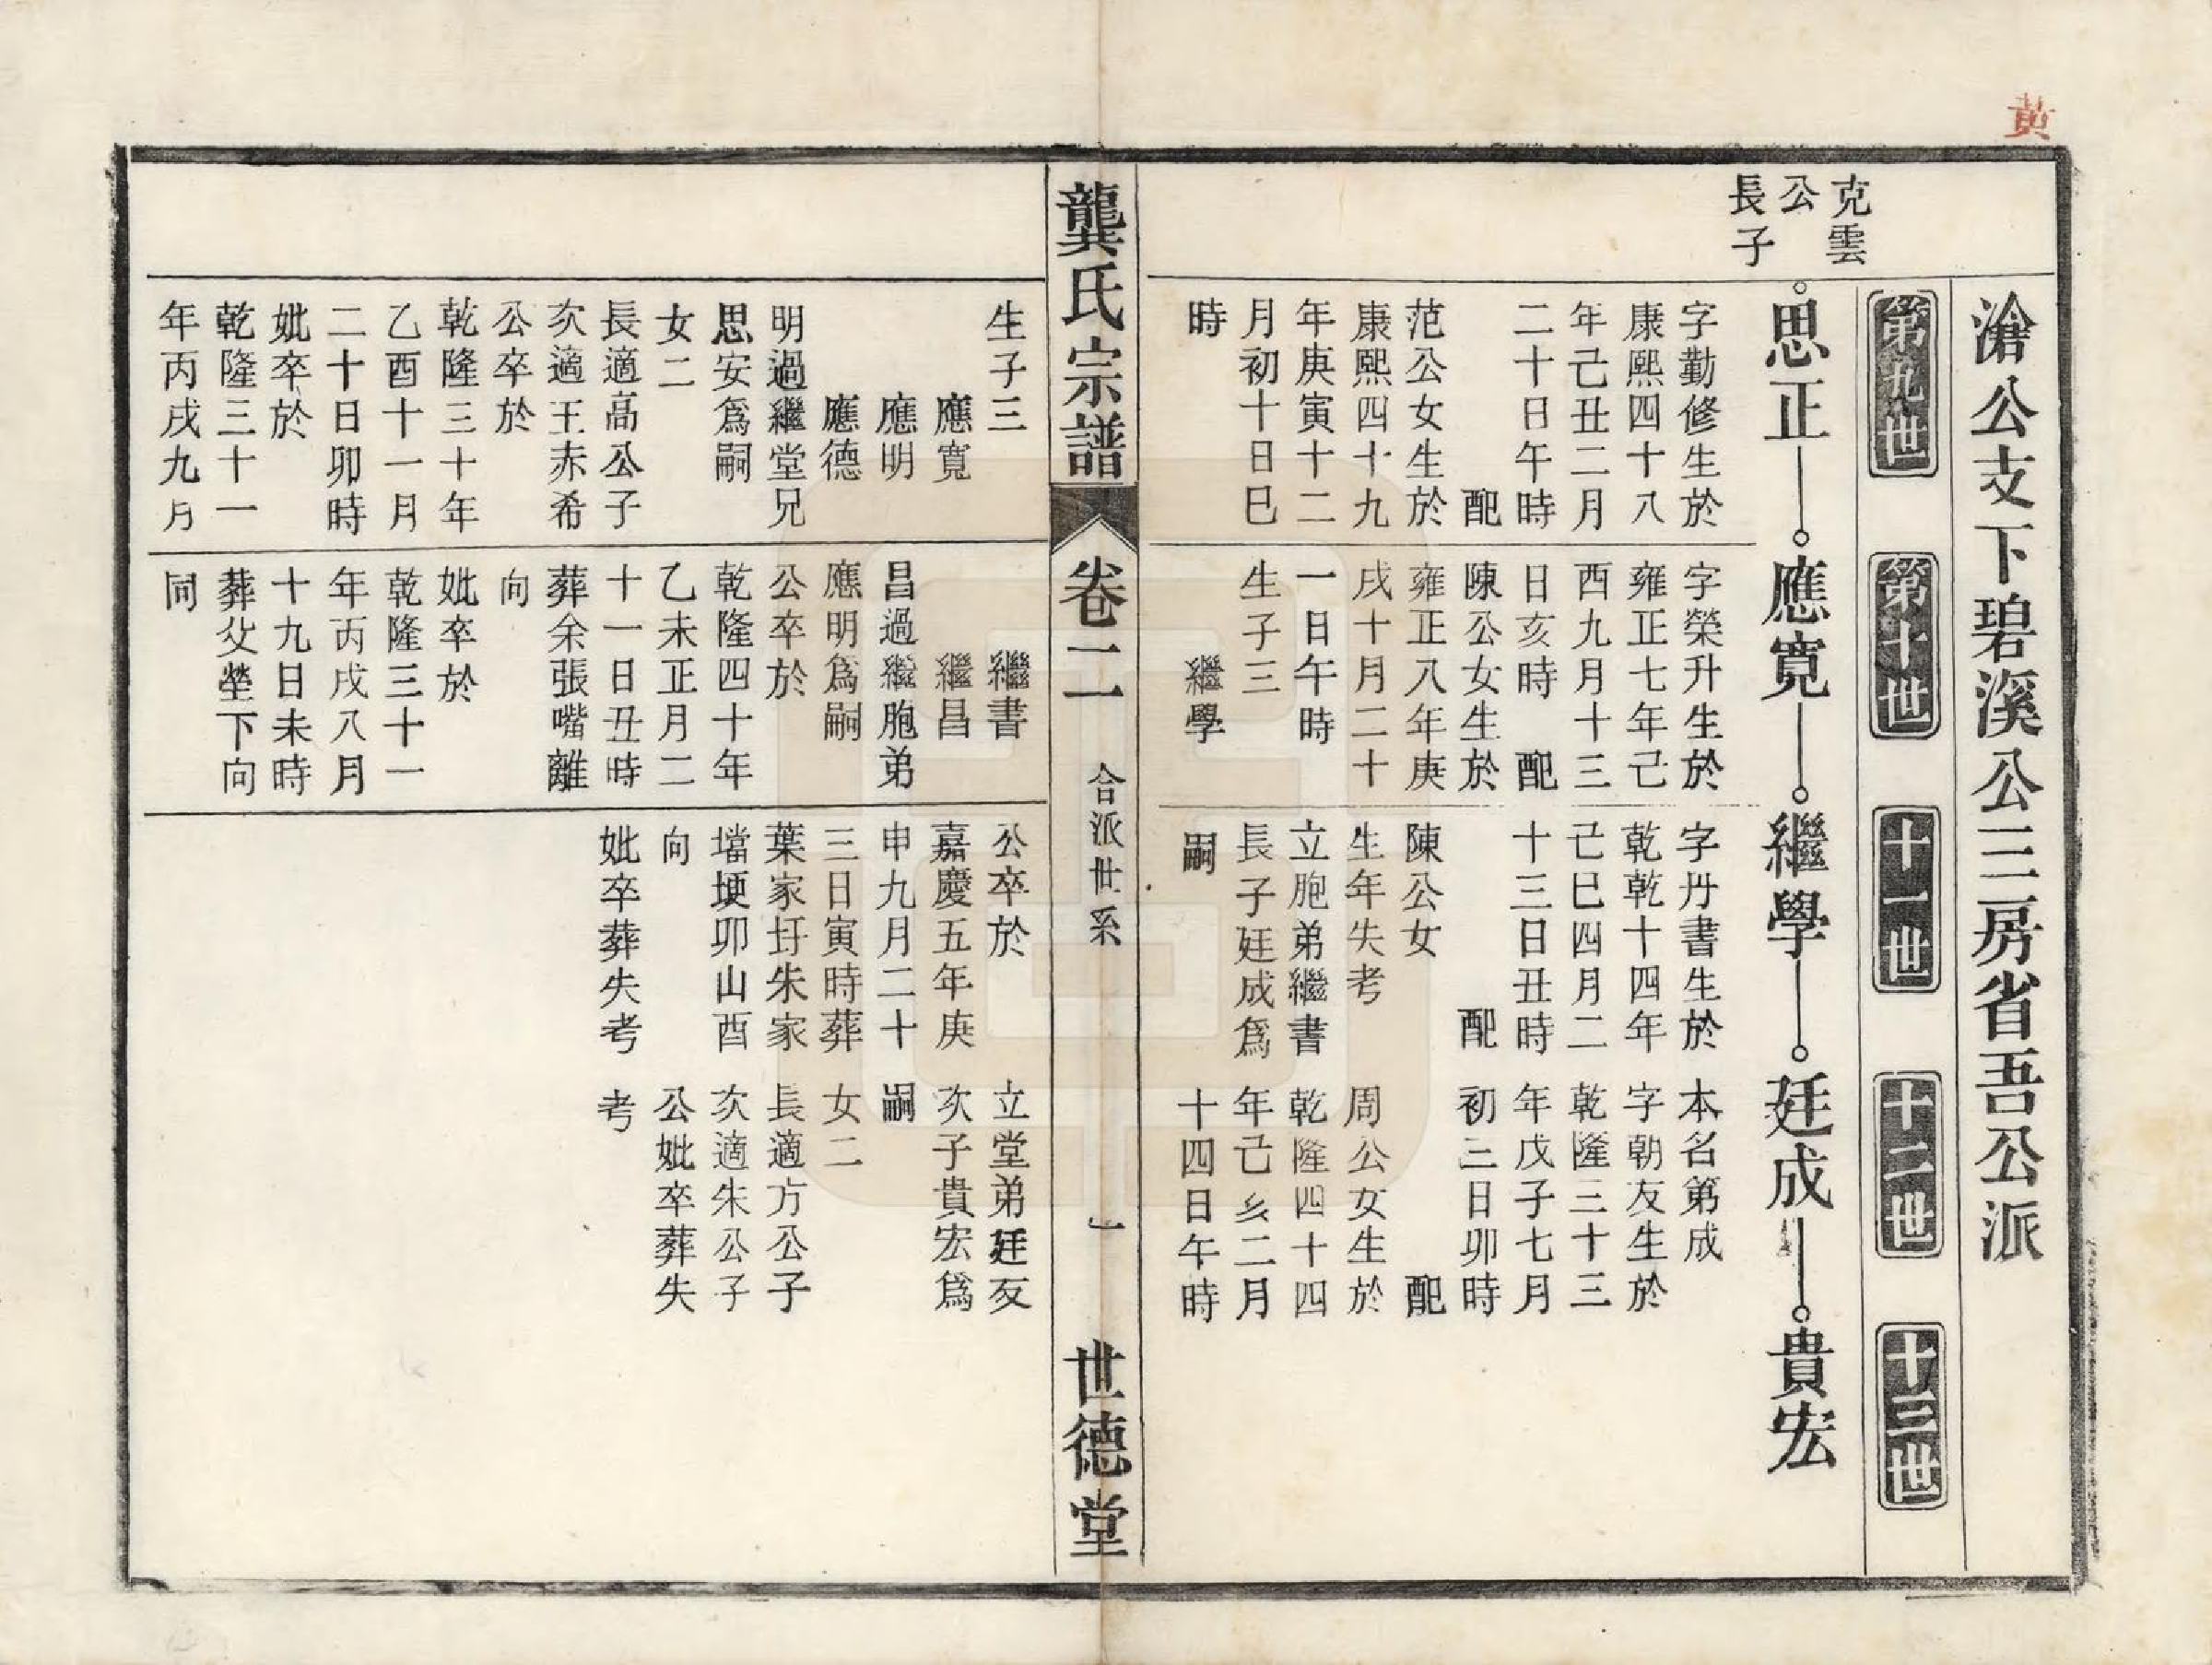 黃
滄公支下碧溪公三房省吾公派
第九世
第十世
十一世
十二世
十三世
克雲
公
長子
思正
應寬
繼學
廷成
貴宏
字勤修生於
康熙四十八
年己丑二月
二十日午時
配
范公女生於
康熙四十九
年庚寅十二
月初十日巳
時
字榮升生於
雍正七年己
酉九月十三
日亥時 配
陳公女生於
雍正八年庚
戌十月二十
一日午時
生子三
繼學
字丹書生於
乾乾十四年
己巳四月二
十三日丑時
配
陳公女
生年失考
立胞弟繼書
長子廷成爲
嗣
本名第成
字朝友生於
乾隆三十三
年戊子七月
初三日卯時
配
周公女生於
乾隆四十四
年己亥二月
十四日午時
龔氏宗譜
卷二
合派世系
一
世德堂
生子三
應寬
應明
應德
明過繼堂兄
思安爲嗣
女二
長適高公子
次適王赤希
公卒於
乾隆三十年
乙酉十一月
二十日卯時
妣卒於
乾隆三十一
年丙戌九月
繼書
繼昌
昌過繼胞弟
應明爲嗣
公卒於
乾隆四十年
乙未正月二
十一日丑時
葬余張嘴離
向
妣卒於
乾隆三十一
年丙戌八月
十九日未時
葬父塋下向
同
公卒於
嘉慶五年庚
申九月二十
三日寅時葬
葉家圩朱家
壋埂卯山酉
向
妣卒葬失考
立堂弟廷友
次子貴宏爲
嗣
女二
長適方公子
次適朱公子
公妣卒葬失
考